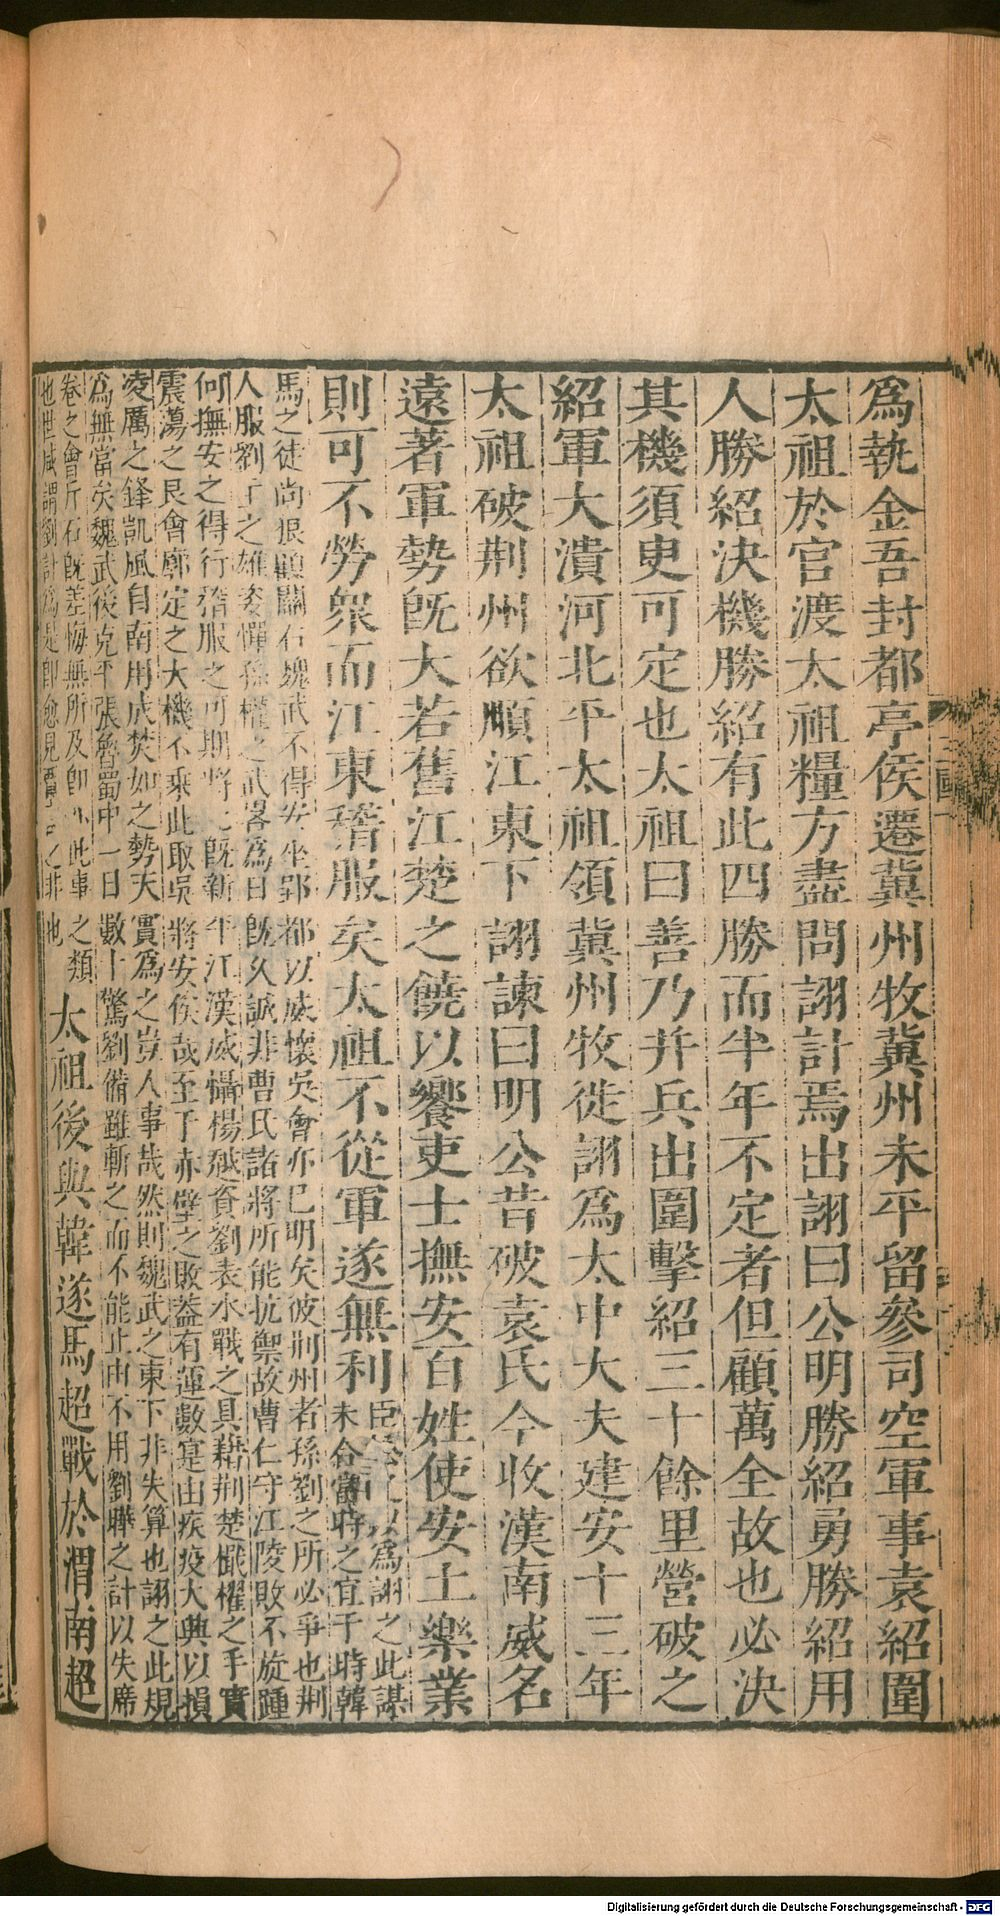 爲執金吾封都亭侯遷冀州牧冀州未平留參司空軍事袁紹圍
太祖於官渡太祖糧方盡問詡計焉出詡曰公明勝紹勇勝紹用
人勝紹決機勝紹有此四勝而半年不定者但顧萬全故也必決
其機須臾可定也太祖曰善乃并兵出圍擊紹三十餘里營破之
紹軍大潰河北平太祖領冀州牧徙詡爲太中大夫建安十三年
太祖破荆州欲順江東下詡諫曰明公昔破袁氏今收漢南威名
遠著軍勢旣大若舊江楚之饒以饗吏士撫安百姓使安土樂業
則可不勞衆而江東稽服矣太祖不從軍遂無利
臣松之以爲詡之此謀
未合當時之宜于時韓
馬之徒尚狼顧關右魏武不得安坐郢都以威懷吳會亦已明矣彼荆州者孫劉之所必爭也荆
人服劉主之雄姿憚孫權之武畧爲日旣久誠非曹氏諸將所能抗禦故曹仁守江陵敗不旋踵
何撫安之得行稽服之可期將此旣新平江漢威懾楊越資劉表水戰之具藉荆楚檝櫂之手實
震蕩之良會廓定之大機不乘此取吳將安俟哉至于赤壁之敗蓋有運數寔由疾疫大興以損
凌厲之鋒凱風自南用成焚如之勢天實爲之豈人事哉然則魏武之東下非失算也詡之此規
爲無當矣魏武後克平張魯蜀中一日數十驚劉備雖斬之而不能止由不用劉曄之計以失席
卷之會斤石旣差悔無所及卽亦此事之類
也世咸謂劉計爲是卽愈見賈言之非也
太祖後與韓遂馬超戰於渭南超
Digitalisierung gefördert durch die Deutsche Forschungsgemeinschaft - DFG